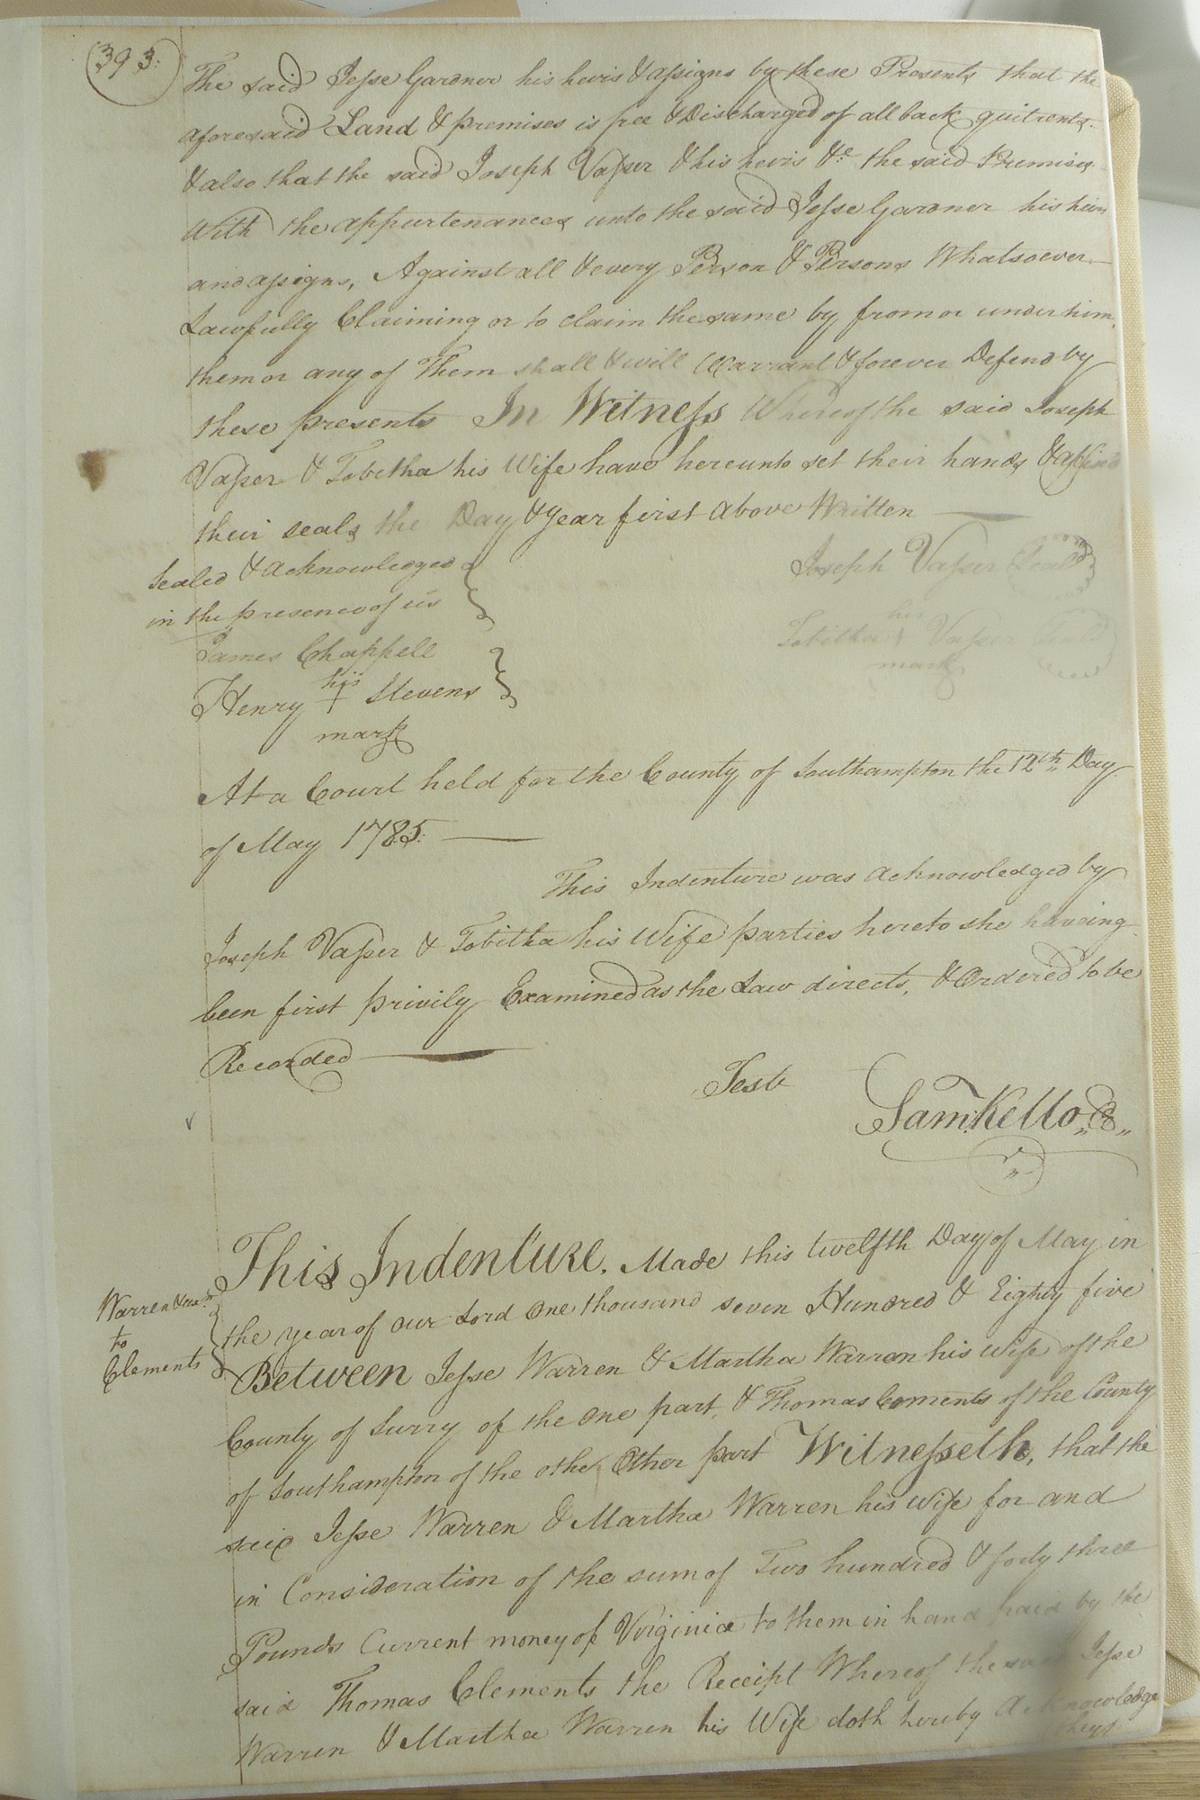 393:
The said Jesse Gardner his heirs & assigns by these Presents that the
aforesaid Land & premises is free & Discharged of all back quitrents.
& also that the said Joseph Vasser & his heirs &c. the said Premises
With the appurtenances unto the said Jesse Gardner his heirs
and assigns, Against all & every Person & Persons Whatsoever
Lawfully Claiming or to claim the same by from or under him,
them or any of Them shall & will Warrant & forever Defend by
these presents In Witness Whereof the said Joseph
Vasser & Tobitha his Wife have hereunto set their hands & affixed
their seals the Day & Year first above Written
Sealed & Acknowledged
in the presence of us
Joseph Vasser Seal
James Chappell
her
Tobitha + Vasser
mark
his
Henry + Stevens
mark
At a Court held for the County of Southampton the 12th Day
of May 1785:
This Indenture was Acknowledged by
Joseph Vasser & Tobitha his Wife parties hereto she having
been first privily Examined as the Law directs, & Ordered to be
Recorded
Test
Sam: Kello
This Indenture. Made this twelfth Day of May in
Warren & ux.
to
Clements
the year of our Lord One thousand seven Hundred & Eighty five
Between Jesse Warren & Martha Warren his wife of the
County of Surry of the One part, & Thomas Cements of the County
of Southampton of the othe Other part Witnesseth, that the
said Jesse Warren & Martha Warren his wife for and
in Consideration of the sum of Two hundred & forty three
Pounds Current money of Virginia to them in hand paid by the
said Thomas Clements the Receipt Whereof the said Jesse
Warren & Martha Warren his Wife doth hereby Acknowledge